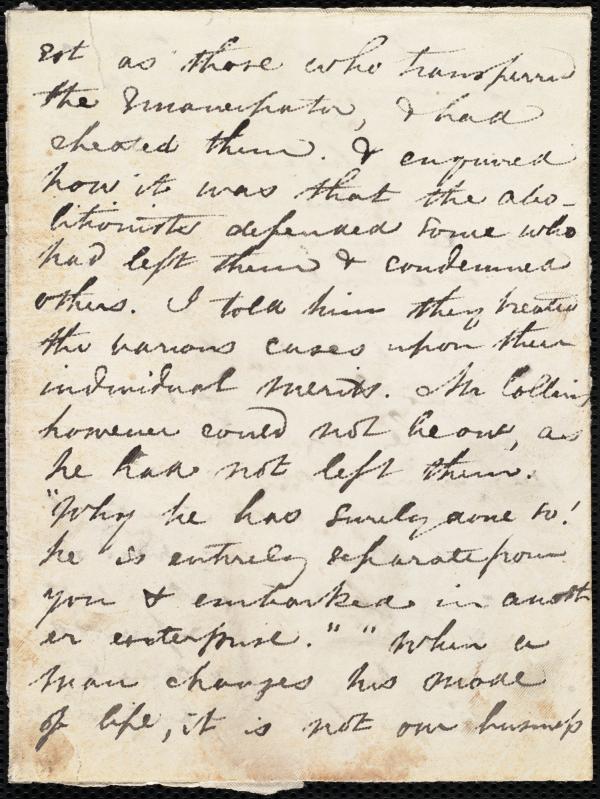 est as those who transferred
the Emancipator, & had
cheated them. & enquired
how it was that the abo-
litionists defended some who
had left them & condemned
others. I told him they treated
the various cases upon their
individual merits. Mr Collins
however could not be one, as
he had not left them.
"Why he has surely done so!
he is entirely separate from
you & embarked in anoth
er enterprise." "When a
man changes his mode
of life, it is not our business